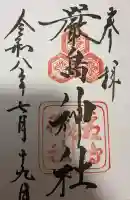 奉拝
厳島神社
令和八年七月十九日